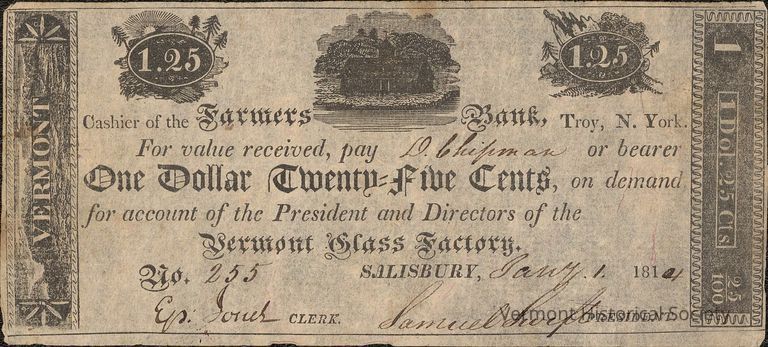 1.25 1.25
VERMONT
Cashier of the Farmers Bank, Troy, N. York.
For value received, pay D. Chipman or bearer
One Dollar Twenty-Five Cents, on demand
for account of the President and Directors of the
Vermont Glass Factory.
No. 255 SALISBURY, Jany. 1. 1814
Ep. Jones CLERK. Samuel Swift PRESIDENT
1
1 Dol. 25 Cts
25
100
Vermont Historical Society